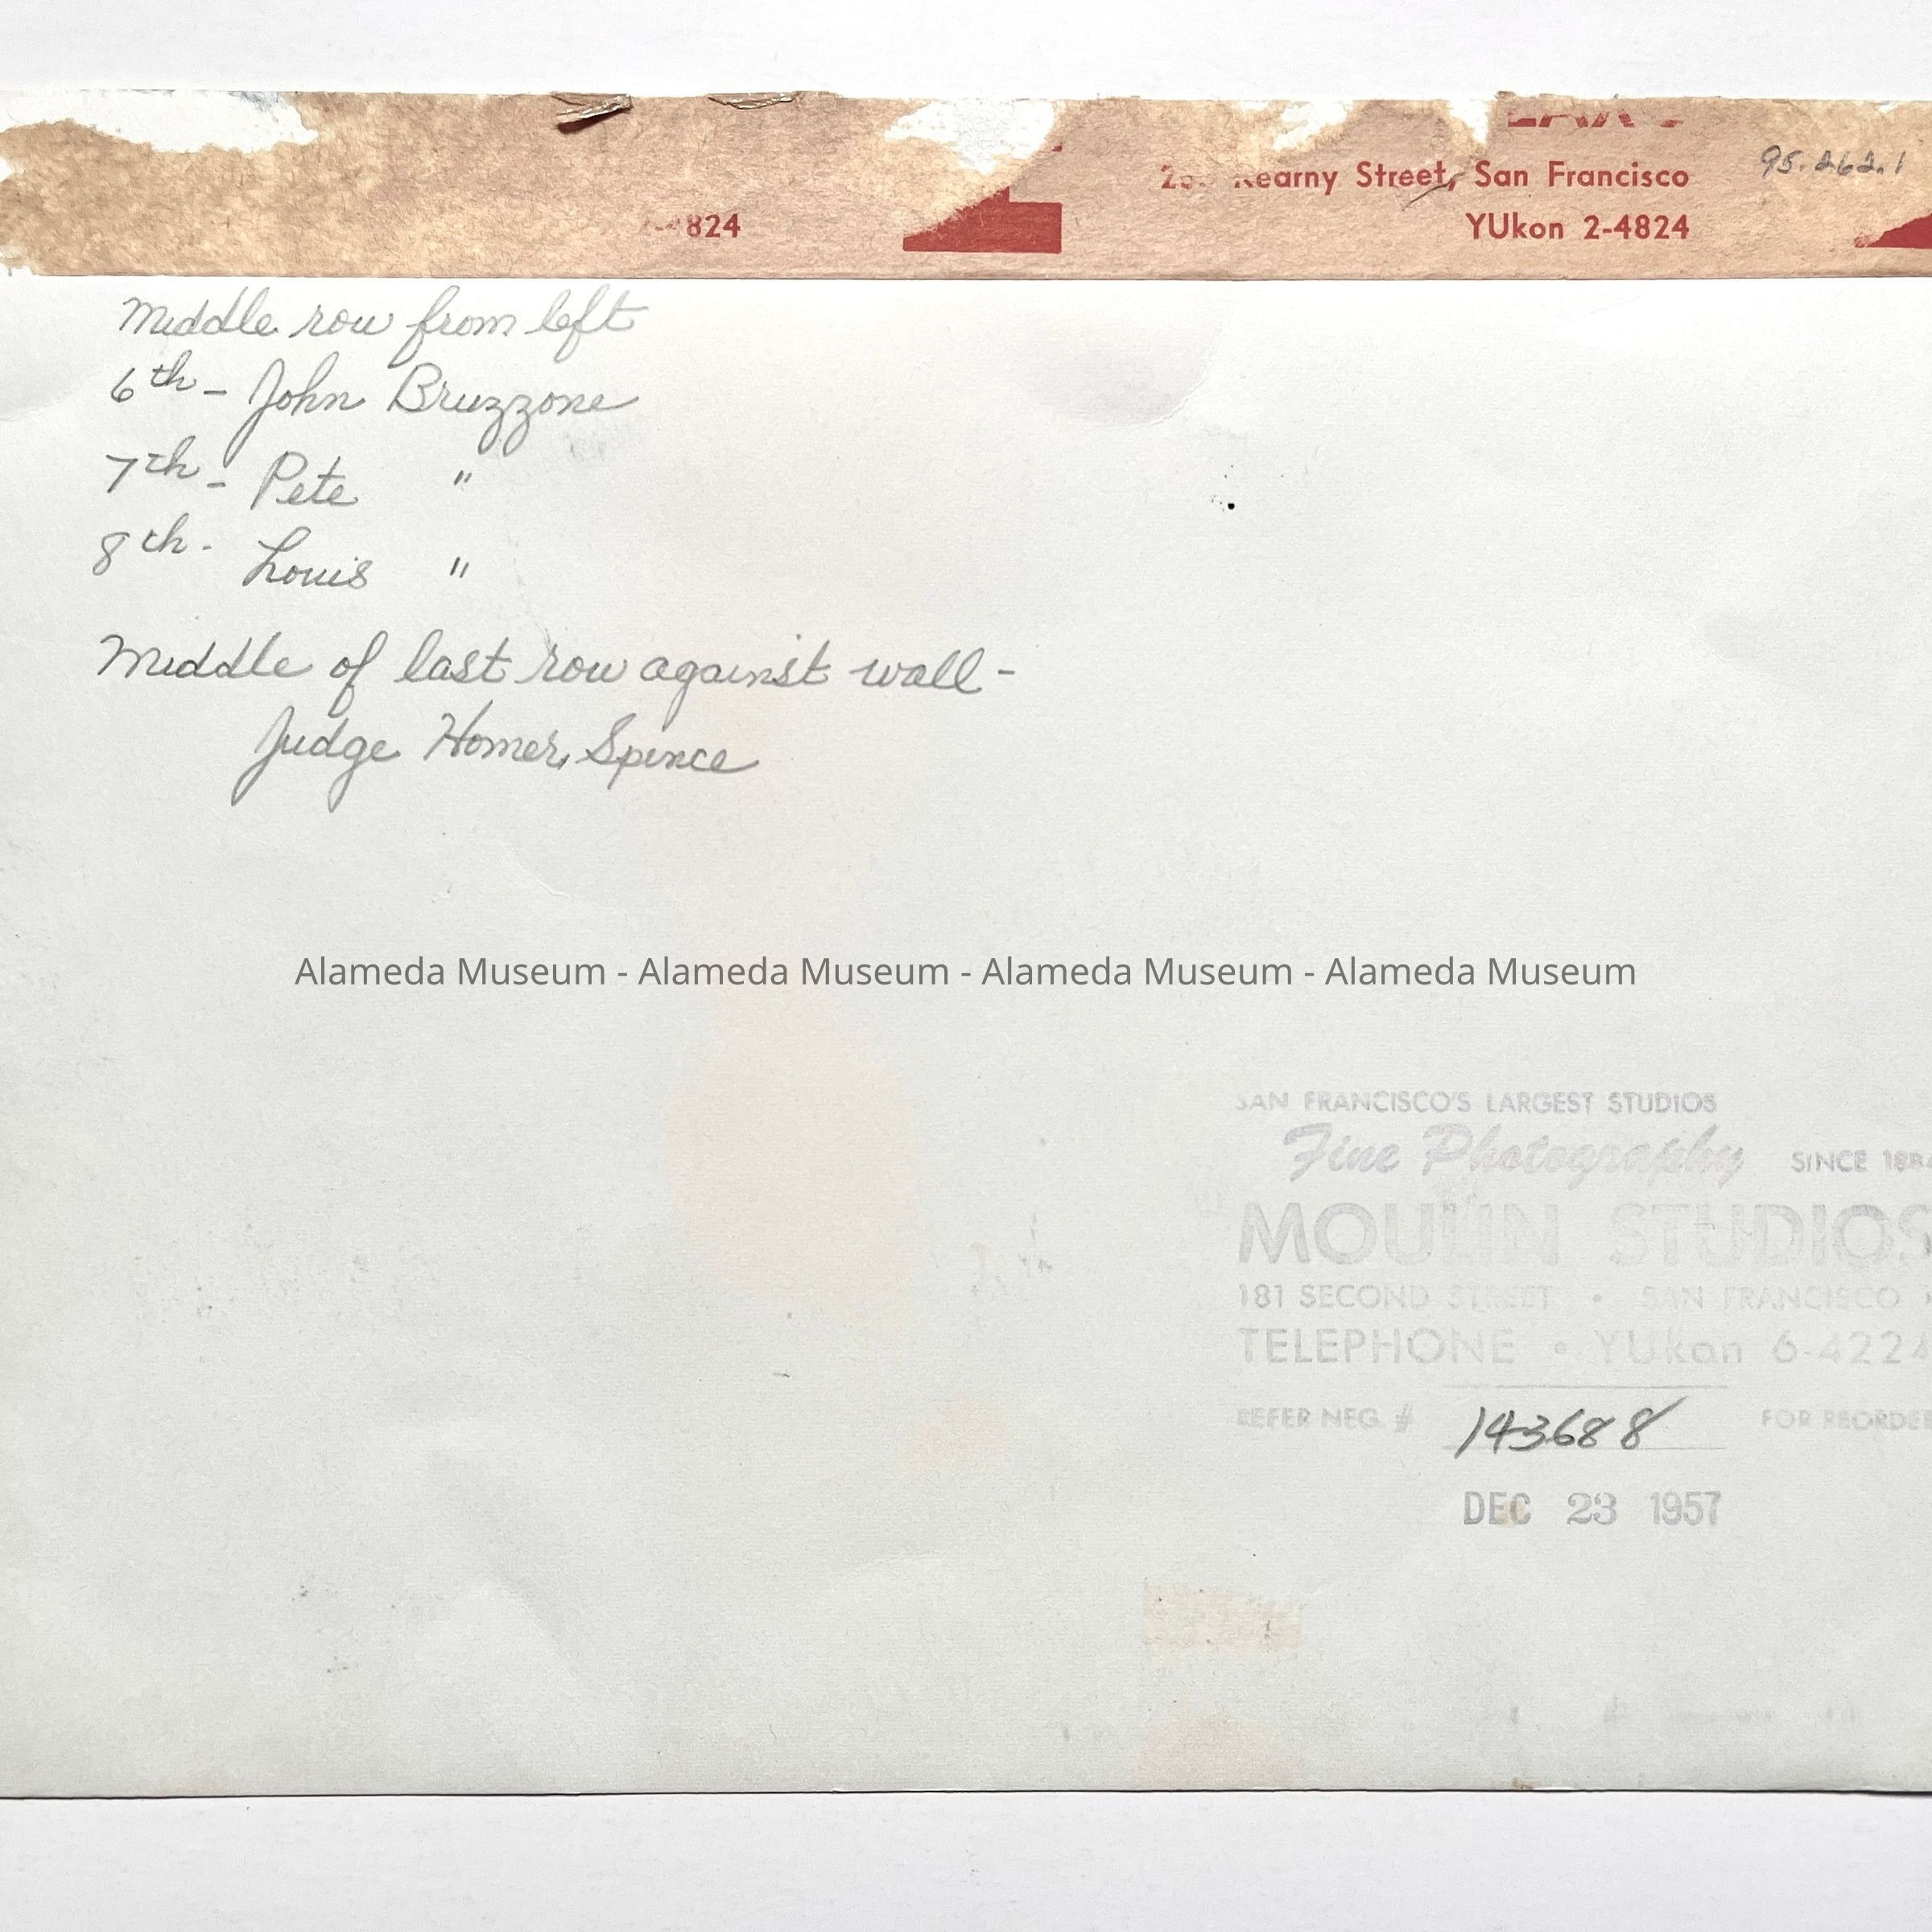 Kearny Street, San Francisco
95.262.1
824
YUkon 2-4824
Middle row from left
6th - John Bruzzone
7th - Pete "
8th - Louis "
Middle of last row against wall -
Judge Homer Spence
Alameda Museum - Alameda Museum - Alameda Museum - Alameda Museum
SAN FRANCISCO'S LARGEST STUDIOS
Fine Photography SINCE
MOULIN STUDIOS
181 SECOND STREET • SAN FRANCISCO
TELEPHONE • YUkon 6-4224
REFER NEG. # 143688 FOR REORDER
DEC 23 1957